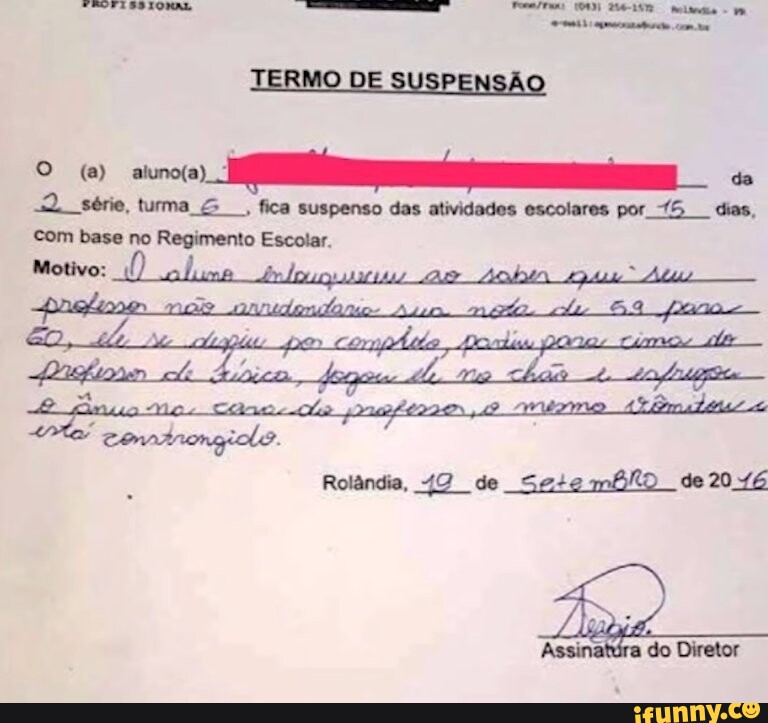 PROFISSIONAL
Fone/Fax: (043) 256-1572 Rolândia - PR
e-mail:
TERMO DE SUSPENSÃO
O (a) aluno(a) da
2 série, turma 6, fica suspenso das atividades escolares por 15 dias,
com base no Regimento Escolar.
Motivo: O aluno enlouqueceu ao saber que seu
professor não arredondaria sua nota de 59 para
60, ele se despiu por completo, partiu para cima do
professor de física, jogou ele no chão e esfregou
o ânus na cara do professor, o mesmo vômitou e
está constrongido.
Rolândia, 19 de SetemBRO de 2016
Assinatura do Diretor
ifunny.co